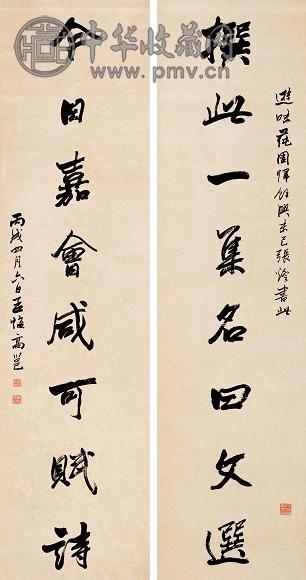 中华收藏网
www.pmv.cn
撰此一集名曰文選
遊味蒓園歸餘興未已張燈書此
今日嘉會咸可賦詩
丙戌四月六日孟悔高邕